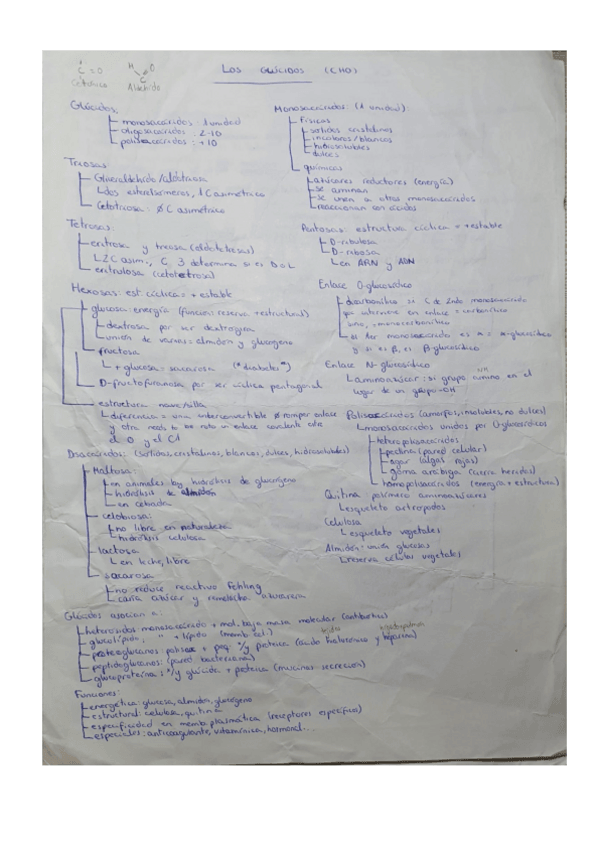 LOS GLÚCIDOS (CHO)
C=O
Cetónico
H O
C
Aldehído
Glúcidos:
monosacáridos 1 unidad
oligosacáridos: 2-10
polisacáridos: +10
Monosacáridos (1 unidad):
Físicos
sólidos cristalinos
incoloros/blancos
hidrosolubles
dulces
químicos
azúcares reductores (energía)
se aminan
se unen a otros monosacáridos
reaccionan con ácidos
Triosas:
Gliceraldehído/aldotriosa
dos estereoisómeros, 1C asimétrico
Cetotriosa: Ø C asimétrico
Tetrosas:
eritrosa y treosa (aldotetrosas)
2C asim., C 3 determina si es D o L
eritrulosa (cetotetrosa)
Pentosas: estructura cíclica = +estable
D-ribulosa
D-ribosa
en ARN y ADN
Hexosas: est. cíclica = + estable
glucosa: energía (función reserva +estructural)
dextrosa por ser dextrógira
unión de varias = almidón y glucógeno
fructosa
+ glucosa = sacarosa ("diabetes")
D-fructofuranosa por ser cíclica pentagonal
estructura nave/silla
diferencia = una interconvertible Ø romper enlace
y otra needs to be roto un enlace covalente entre
el O y el C1
Enlace O-glucosídico
dicarbonílico si C de 2ndo monosacárido
que interviene en enlace = carbonílico
sino, =monocarbonílico
si 1er monosacárido es α = α-glucosídico
y si es β, es β-glucosídico
Enlace N-glucosídico
aminoazúcar: si grupo amino en el
lugar de un grupo -OH
Polisacáridos (amorfos, insolubles, no dulces)
monosacáridos unidos por O-glucosídicos
heteropolisacáridos
pectina (pared celular)
agar (algas rojas)
goma arábiga (cierra heridas)
homopolisacáridos (energía + estructura)
Quitina: polímero aminoazúcares
esqueleto artrópodos
Celulosa
esqueleto vegetales
Almidón = unión glucosas
reserva celular vegetales
Disacáridos: (sólidos, cristalinos, blancos, dulces, hidrosolubles)
Maltosa:
en animales by hidrólisis de glucógeno
hidrólisis de almidón
en cebada
celobiosa:
no libre en naturaleza
hidrólisis celulosa
lactosa
en leche, libre
sacarosa
no reduce reactivo Fehling
caña azúcar y remolacha azucarera
Glúcidos asocian a:
heterósidos: monosacárido + mol. baja masa molecular (antibiótico)
glucolípido: " + lípido (memb. cel.)
proteoglucanos: polisac + peq. % proteica (ácido hialurónico y heparina)
peptidoglucanos: (pared bacteriana)
glucoproteína: % glúcido + proteica (mucinas-secreción)
Funciones:
energética: glucosa, almidón, glucógeno
estructural: celulosa, quitina
especificidad en memb. plasmática (receptores específicos)
especiales: anticoagulante, vitamínica, hormonal...